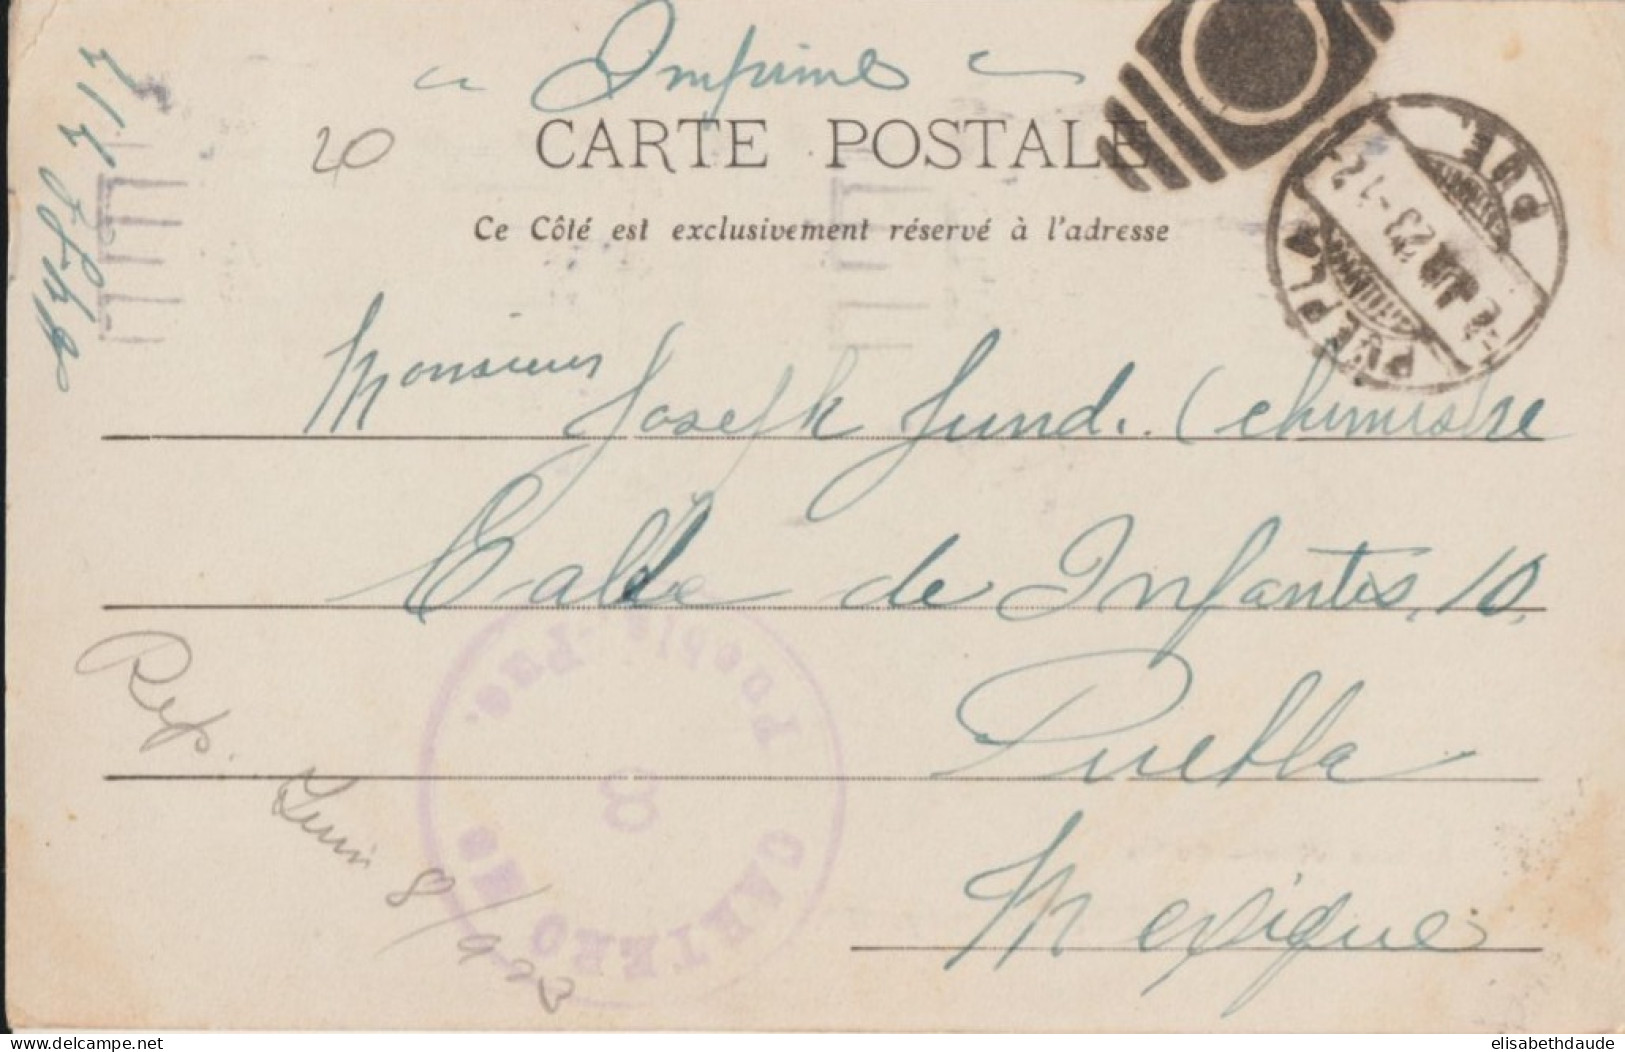 " Imprimé "
20
CARTE POSTALE
Ce Côté est exclusivement réservé à l'adresse
PUEBLA PUE.
JUN 23 - 12
Monsieur Joseph Jund. (chimiste
Calle de Infantes, 10,
Puebla
Mexique
Puebla-Pue.
CARTERO No
8
Rep. Juin 8/923
elisabethdaude